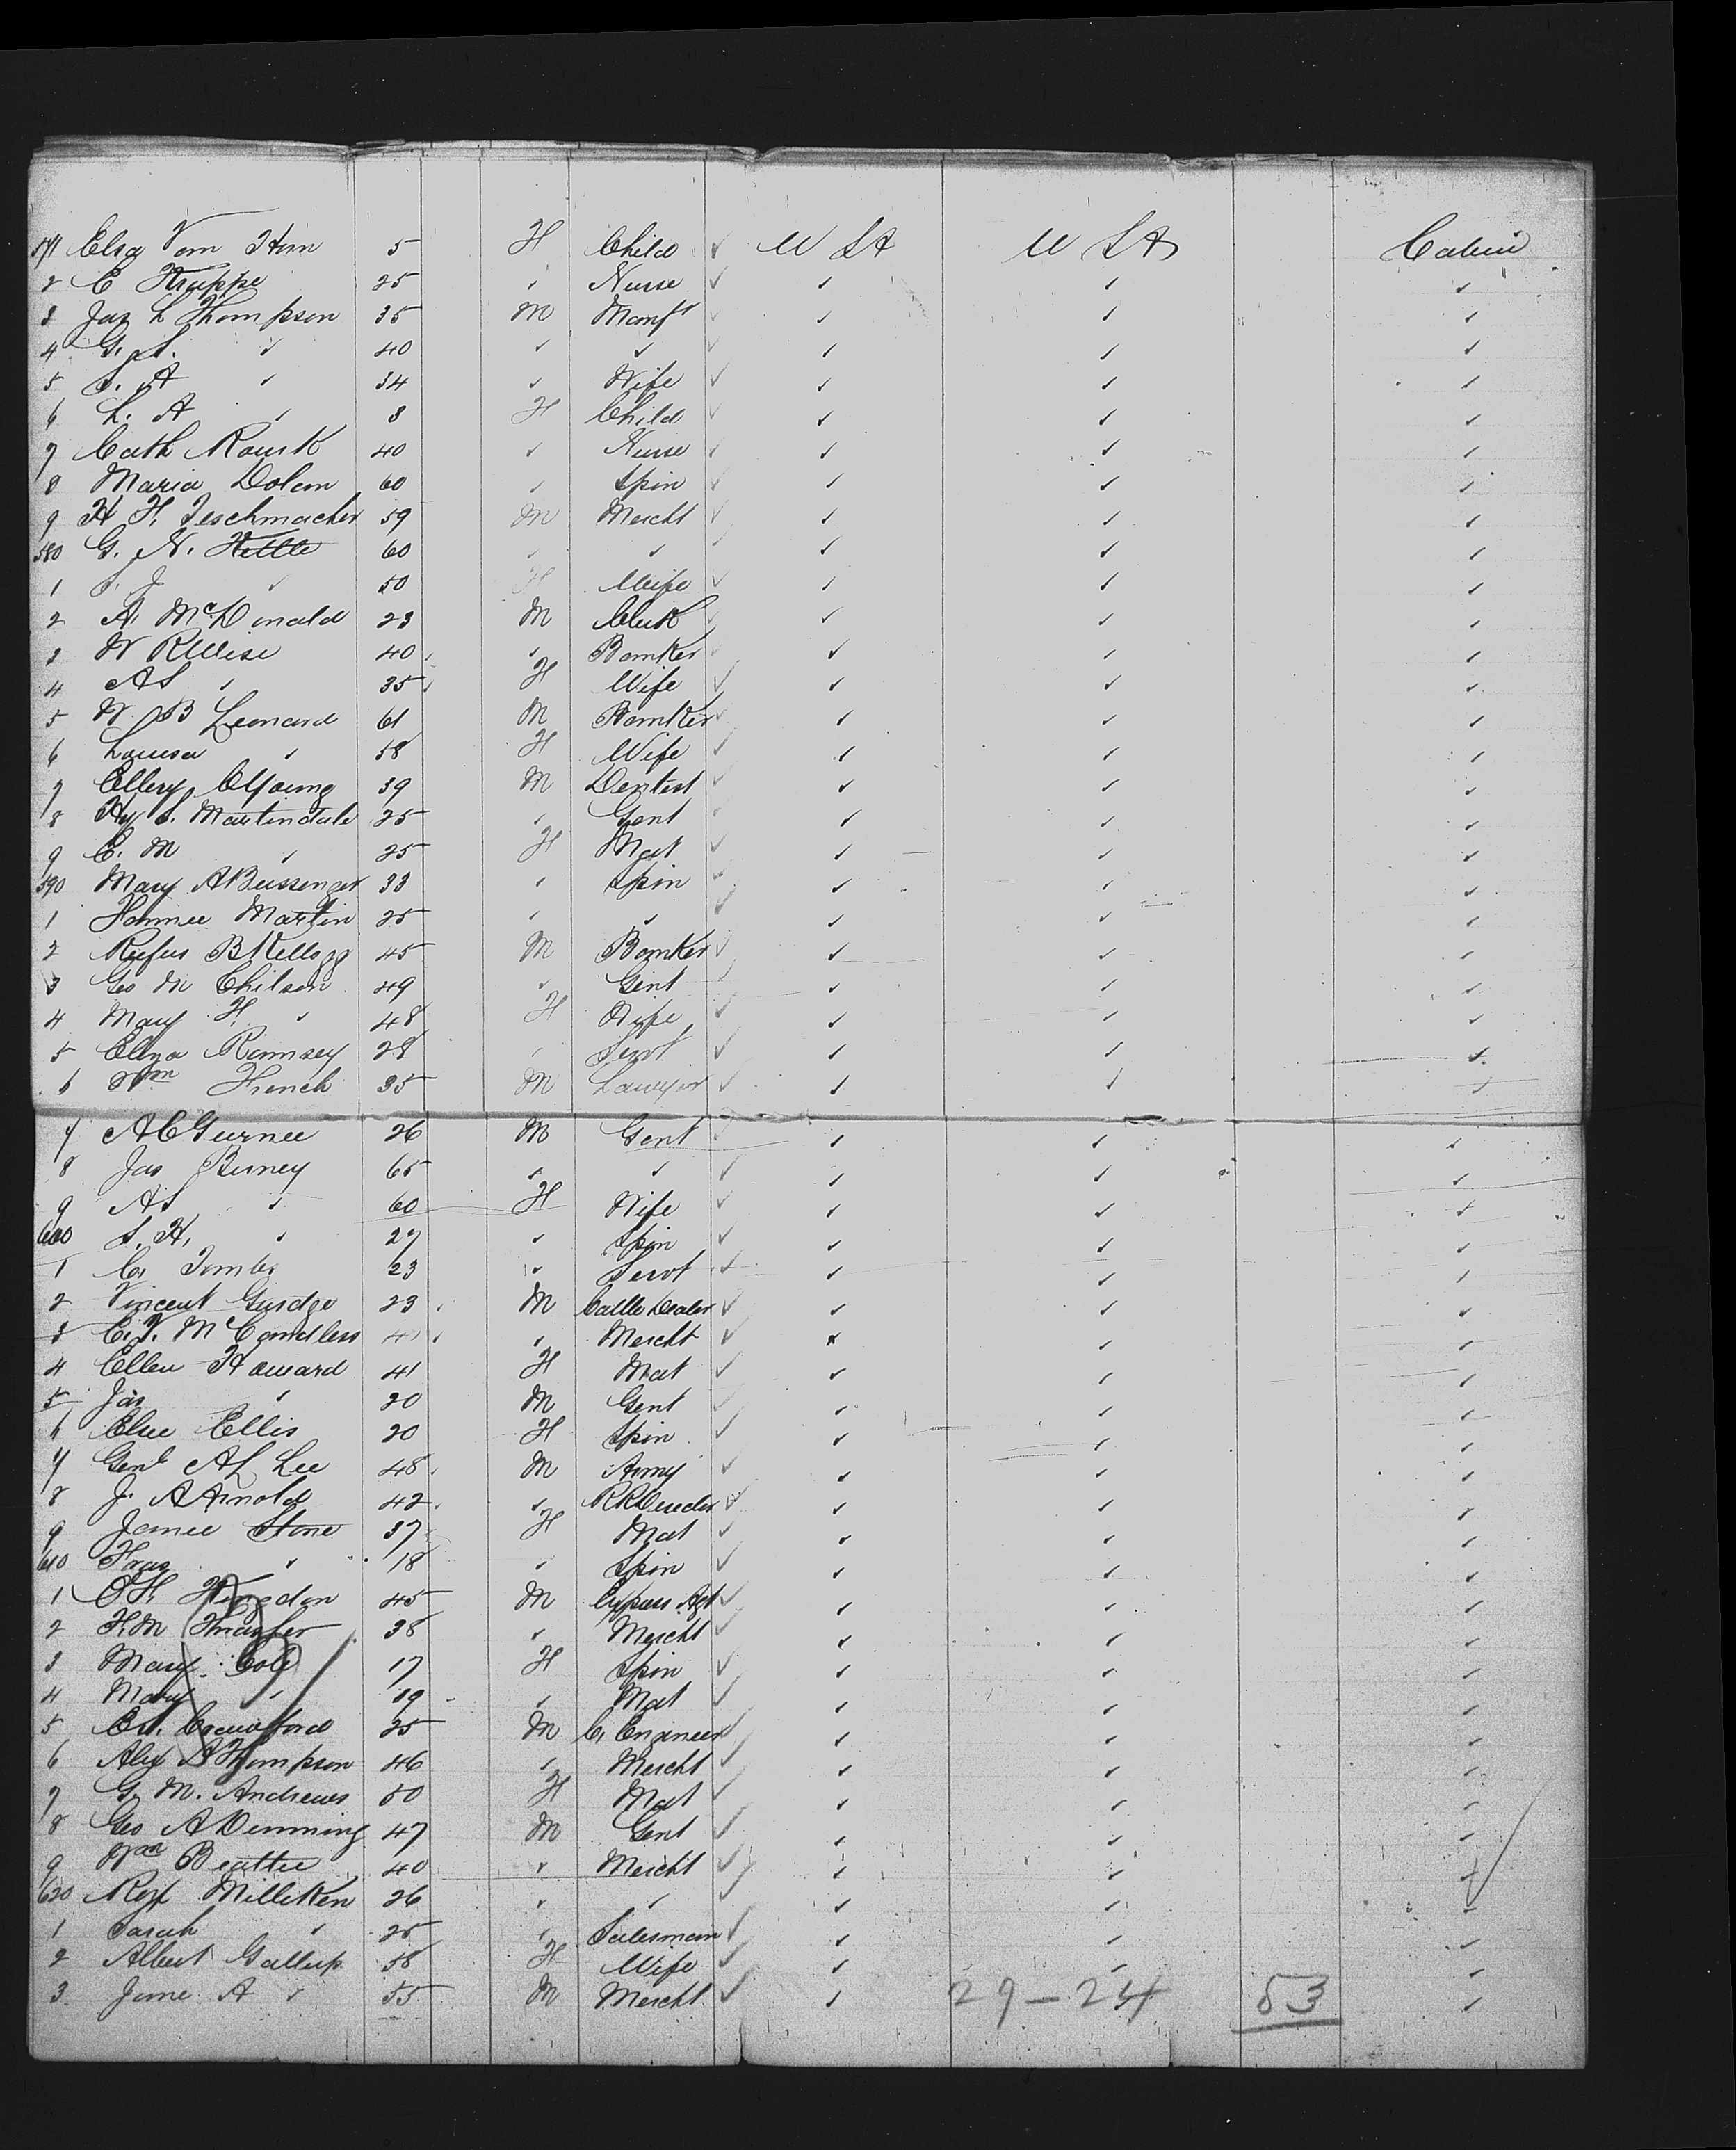 571 Elsa Vom Hum 5 F Child ✓ U S A U S A Cabin
2 C Kruppe 25 " Nurse ✓ ✓ ✓ ✓
3 Jas L Thompson 35 M Manft ✓ ✓ ✓ ✓
4 G. S. " 40 " " ✓ ✓ ✓ ✓
5 S. A " 34 " Wife ✓ ✓ ✓ ✓
6 L. A " 3 F Child ✓ ✓ ✓ ✓
7 Cath Rourk 40 " Nurse ✓ ✓ ✓ ✓
8 Maria Dolan 60 " Spin ✓ ✓ ✓ ✓
9 H F. Teschmacher 59 M Mercht ✓ ✓ ✓ ✓
580 G. N. Kettle 60 " " ✓ ✓ ✓ ✓
1 S. J " 50 F Wife ✓ ✓ ✓ ✓
2 A. McDonald 23 M Clerk ✓ ✓ ✓ ✓
3 W R Wise 40 " Banker ✓ ✓ ✓ ✓
4 A S " 35 F Wife ✓ ✓ ✓ ✓
5 W. B Leonard 61 M Banker ✓ ✓ ✓ ✓
6 Louisa " 58 F Wife ✓ ✓ ✓ ✓
7 Ellery C Young 39 M Dentist ✓ ✓ ✓ ✓
8 Hy S. Martindale 25 " Gent ✓ ✓ ✓ ✓
9 C. M " 25 F Mat ✓ ✓ ✓ ✓
590 Mary A Bussenger 33 " Spin ✓ ✓ ✓ ✓
1 Fannie Martin 25 " " ✓ ✓ ✓ ✓
2 Rufus B Kellogg 45 M Banker ✓ ✓ ✓ ✓
3 Geo M Chilson 49 " Gent ✓ ✓ ✓ ✓
4 Mary F. " 48 F Wife ✓ ✓ ✓ ✓
5 Eliza Ramsey 28 " Servt ✓ ✓ ✓ ✓
6 Wm French 35 M Lawyer ✓ ✓ ✓ ✓
7 A C Gurnee 26 M Gent ✓ ✓ ✓ ✓
8 Jas Birney 65 " " ✓ ✓ ✓ ✓
9 A S " 60 F Wife ✓ ✓ ✓ ✓
600 S. H. " 27 " Spin ✓ ✓ ✓ ✓
1 C. Tombs 23 " Servt ✓ ✓ ✓ ✓
2 Vincent Gusdge 23 M Cattle Dealer ✓ ✓ ✓ ✓
3 C. V. McCandless 41 " Mercht ✓ ✓ ✓ ✓
4 Ellen Howard 41 F Mat ✓ ✓ ✓ ✓
5 Jas " 20 M Gent ✓ ✓ ✓ ✓
6 Elsie Ellis 20 F Spin ✓ ✓ ✓ ✓
7 Genl A L Lee 48 M Army ✓ ✓ ✓ ✓
8 J. A Arnold 42 " R R Director ✓ ✓ ✓ ✓
9 Janie Stone 37 F Mat ✓ ✓ ✓ ✓
610 Fras " 18 " Spin ✓ ✓ ✓ ✓
1 O F. Kingdon 45 M Express Agt ✓ ✓ ✓ ✓
2 F. M 38 " Mercht ✓ ✓ ✓ ✓
3 Mary Cole 17 F Spin ✓ ✓ ✓ ✓
4 Mary " 39 " Mat ✓ ✓ ✓ ✓
5 Crawford 25 M C. Engineer ✓ ✓ ✓ ✓
6 Alex A Thompson 46 " Mercht ✓ ✓ ✓ ✓
7 G. M. Andrews 50 F Mat ✓ ✓ ✓ ✓
8 Geo A Demming 47 M Gent ✓ ✓ ✓ ✓
9 Wm Beattie 40 " Mercht ✓ ✓ ✓ ✓
620 Robt Milliken 26 " " ✓ ✓ ✓ ✓
1 Sarah " 25 " Salesman ✓ ✓ ✓ ✓
2 Albert Gallup 58 F Wife ✓ ✓ ✓ ✓
3 Jane A " 55 M Mercht ✓ ✓ 29 - 24 53 ✓